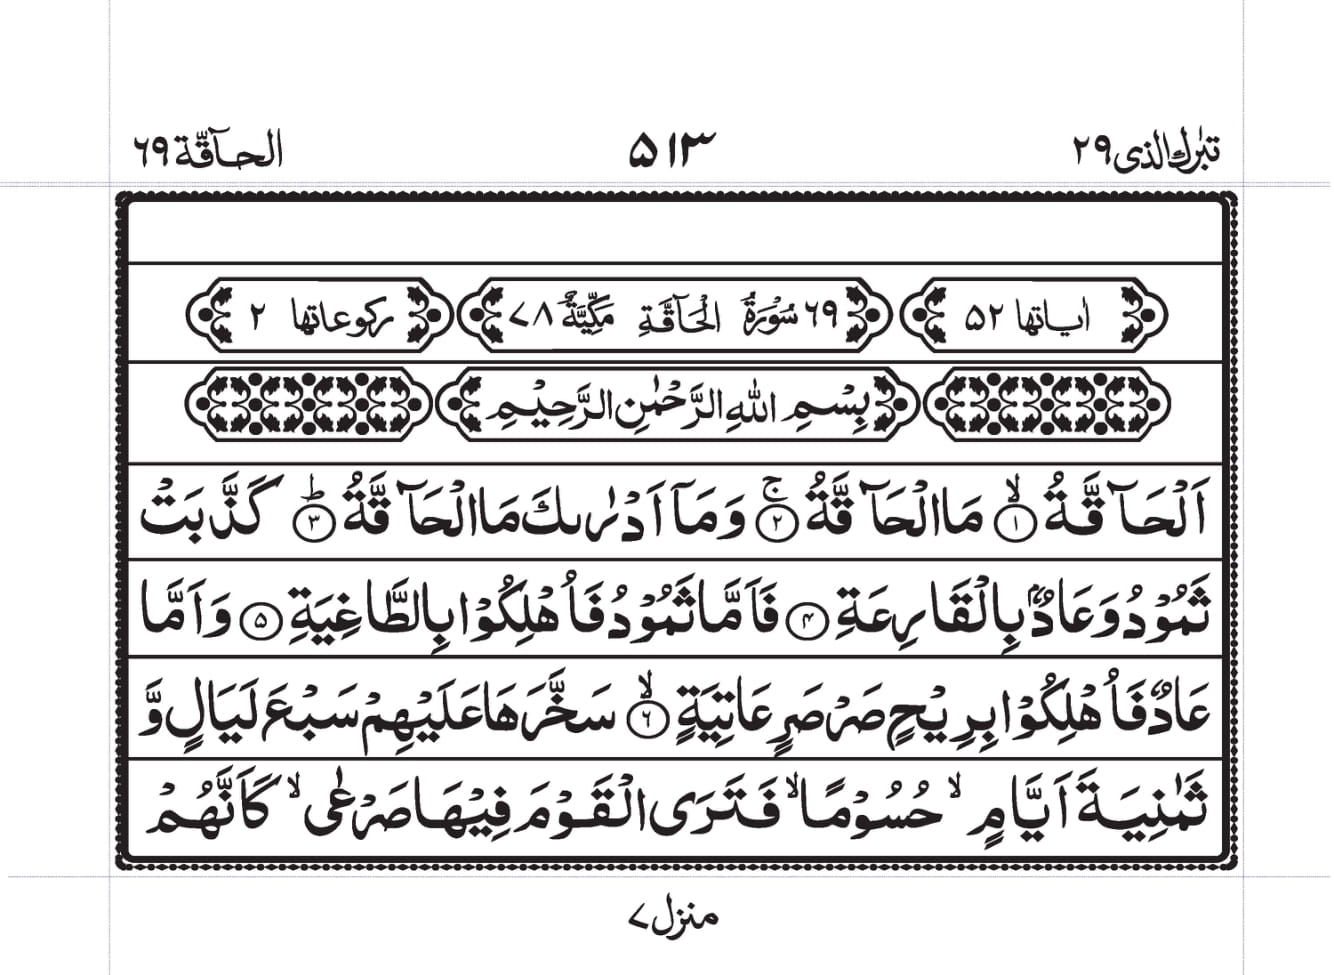 تبٰرك الذی ۲۹ ۵۱۳ الحآقّة ۶۹
اٰیاتها ۵۲ ۶۹ سُوْرَةُ الْحَآقَّةِ مَكِّیَّةٌ ۷۸ ركوعاتها ۲
بِسْمِ اللّٰهِ الرَّحْمٰنِ الرَّحِیْمِ
اَلْحَآقَّةُ ۙ﴿۱﴾ مَا الْحَآقَّةُ ۚ﴿۲﴾ وَمَاۤ اَدْرٰىكَ مَا الْحَآقَّةُ ؕ﴿۳﴾ كَذَّبَتْ
ثَمُوْدُ وَعَادٌۢ بِالْقَارِعَةِ ﴿۴﴾ فَاَمَّا ثَمُوْدُ فَاُهْلِكُوْا بِالطَّاغِیَةِ ﴿۵﴾ وَاَمَّا
عَادٌ فَاُهْلِكُوْا بِرِیْحٍ صَرْصَرٍ عَاتِیَةٍ ۙ﴿۶﴾ سَخَّرَهَا عَلَیْهِمْ سَبْعَ لَیَالٍ وَّ
ثَمٰنِیَةَ اَیَّامٍ ۙ حُسُوْمًا ۙ فَتَرَی الْقَوْمَ فِیْهَا صَرْعٰی ۙ كَاَنَّهُمْ
منزل ۷